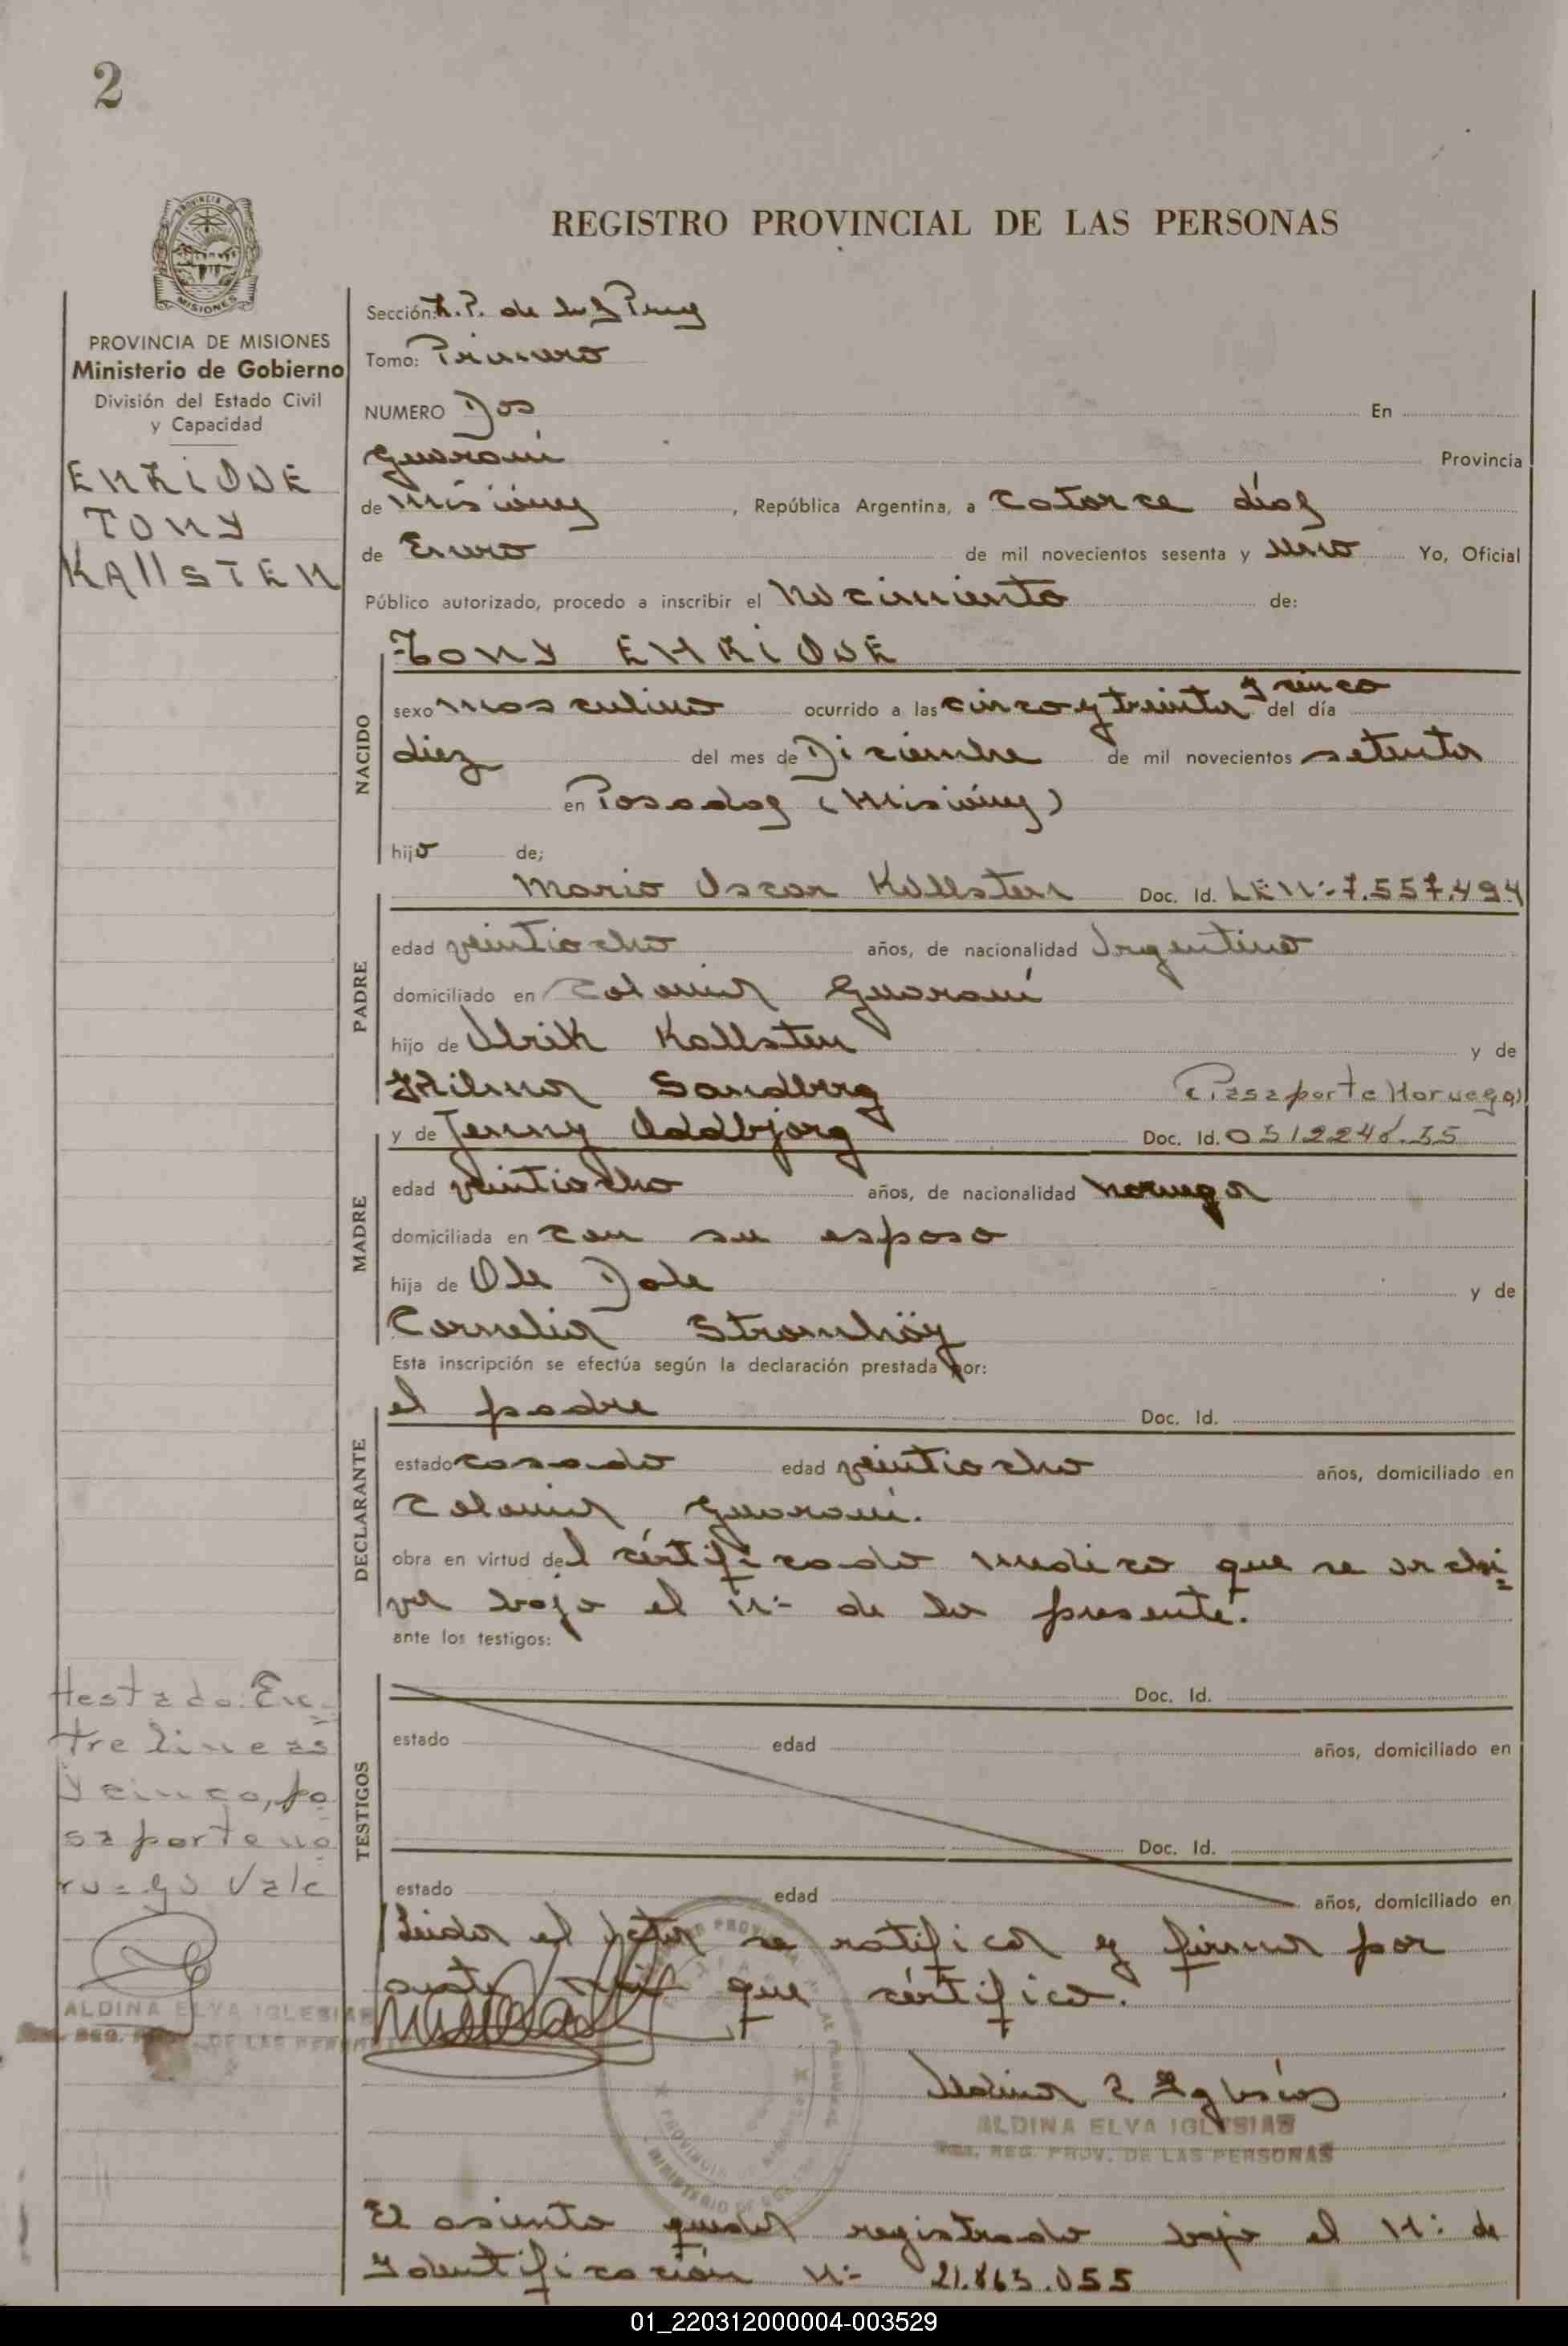 2
REGISTRO PROVINCIAL DE LAS PERSONAS
MISIONES
PROVINCIA DE MISIONES
Ministerio de Gobierno
División del Estado Civil
y Capacidad
ENRIQUE
TONY
KAllSTEN
Sección: R.P. de las
Tomo: Primero
NUMERO Dos En
Guaraní Provincia
de Misiones, República Argentina, a catorce días
de Enero de mil novecientos sesenta y uno Yo, Oficial
Público autorizado, procedo a inscribir el Nacimiento de:
TONY ENRIQUE
NACIDO
y cinco
sexo masculino ocurrido a las cinco y treinta del día
diez del mes de Diciembre de mil novecientos setenta
en Posadas (Misiones)
hijo de;
Mario Oscar Kallsten Doc. Id. LE N:- 7.557.494
PADRE
edad veintiocho años, de nacionalidad Argentino
domiciliado en Colonia Guaraní
hijo de Ulrik Kallsten y de
Hilma Sandberg (Pasaporte Noruego)
y de Jenny Oddbjorg Doc. Id.
MADRE
edad veintiocho años, de nacionalidad noruega
domiciliada en con su esposo
hija de Ole Dale y de
Cornelia Stromhöy
Esta inscripción se efectúa según la declaración prestada por:
el padre Doc. Id.
DECLARANTE
estado casado edad veintiocho años, domiciliado en
Colonia Guaraní.
obra en virtud del cértificado medico que se archi=
va bajo el N:- de la presente.
ante los testigos:
TESTIGOS
Doc. Id.
estado edad años, domiciliado en
Doc. Id.
estado edad años, domiciliado en
Leida el Acta se ratifica y firma por
ante que cértifico.
Testado: En=
tre lineas
y cinco, pa
saporte no
ruego Vale
ALDINA ELVA IGLESIAS
REG. PROV. DE LAS PERSONAS
Aldina E Iglesias
ALDINA ELVA IGLESIAS
REG. PROV. DE LAS PERSONAS
El asiento queda registrado bajo el N: de
Identificación N:- 21.863.055
01_220312000004-003529